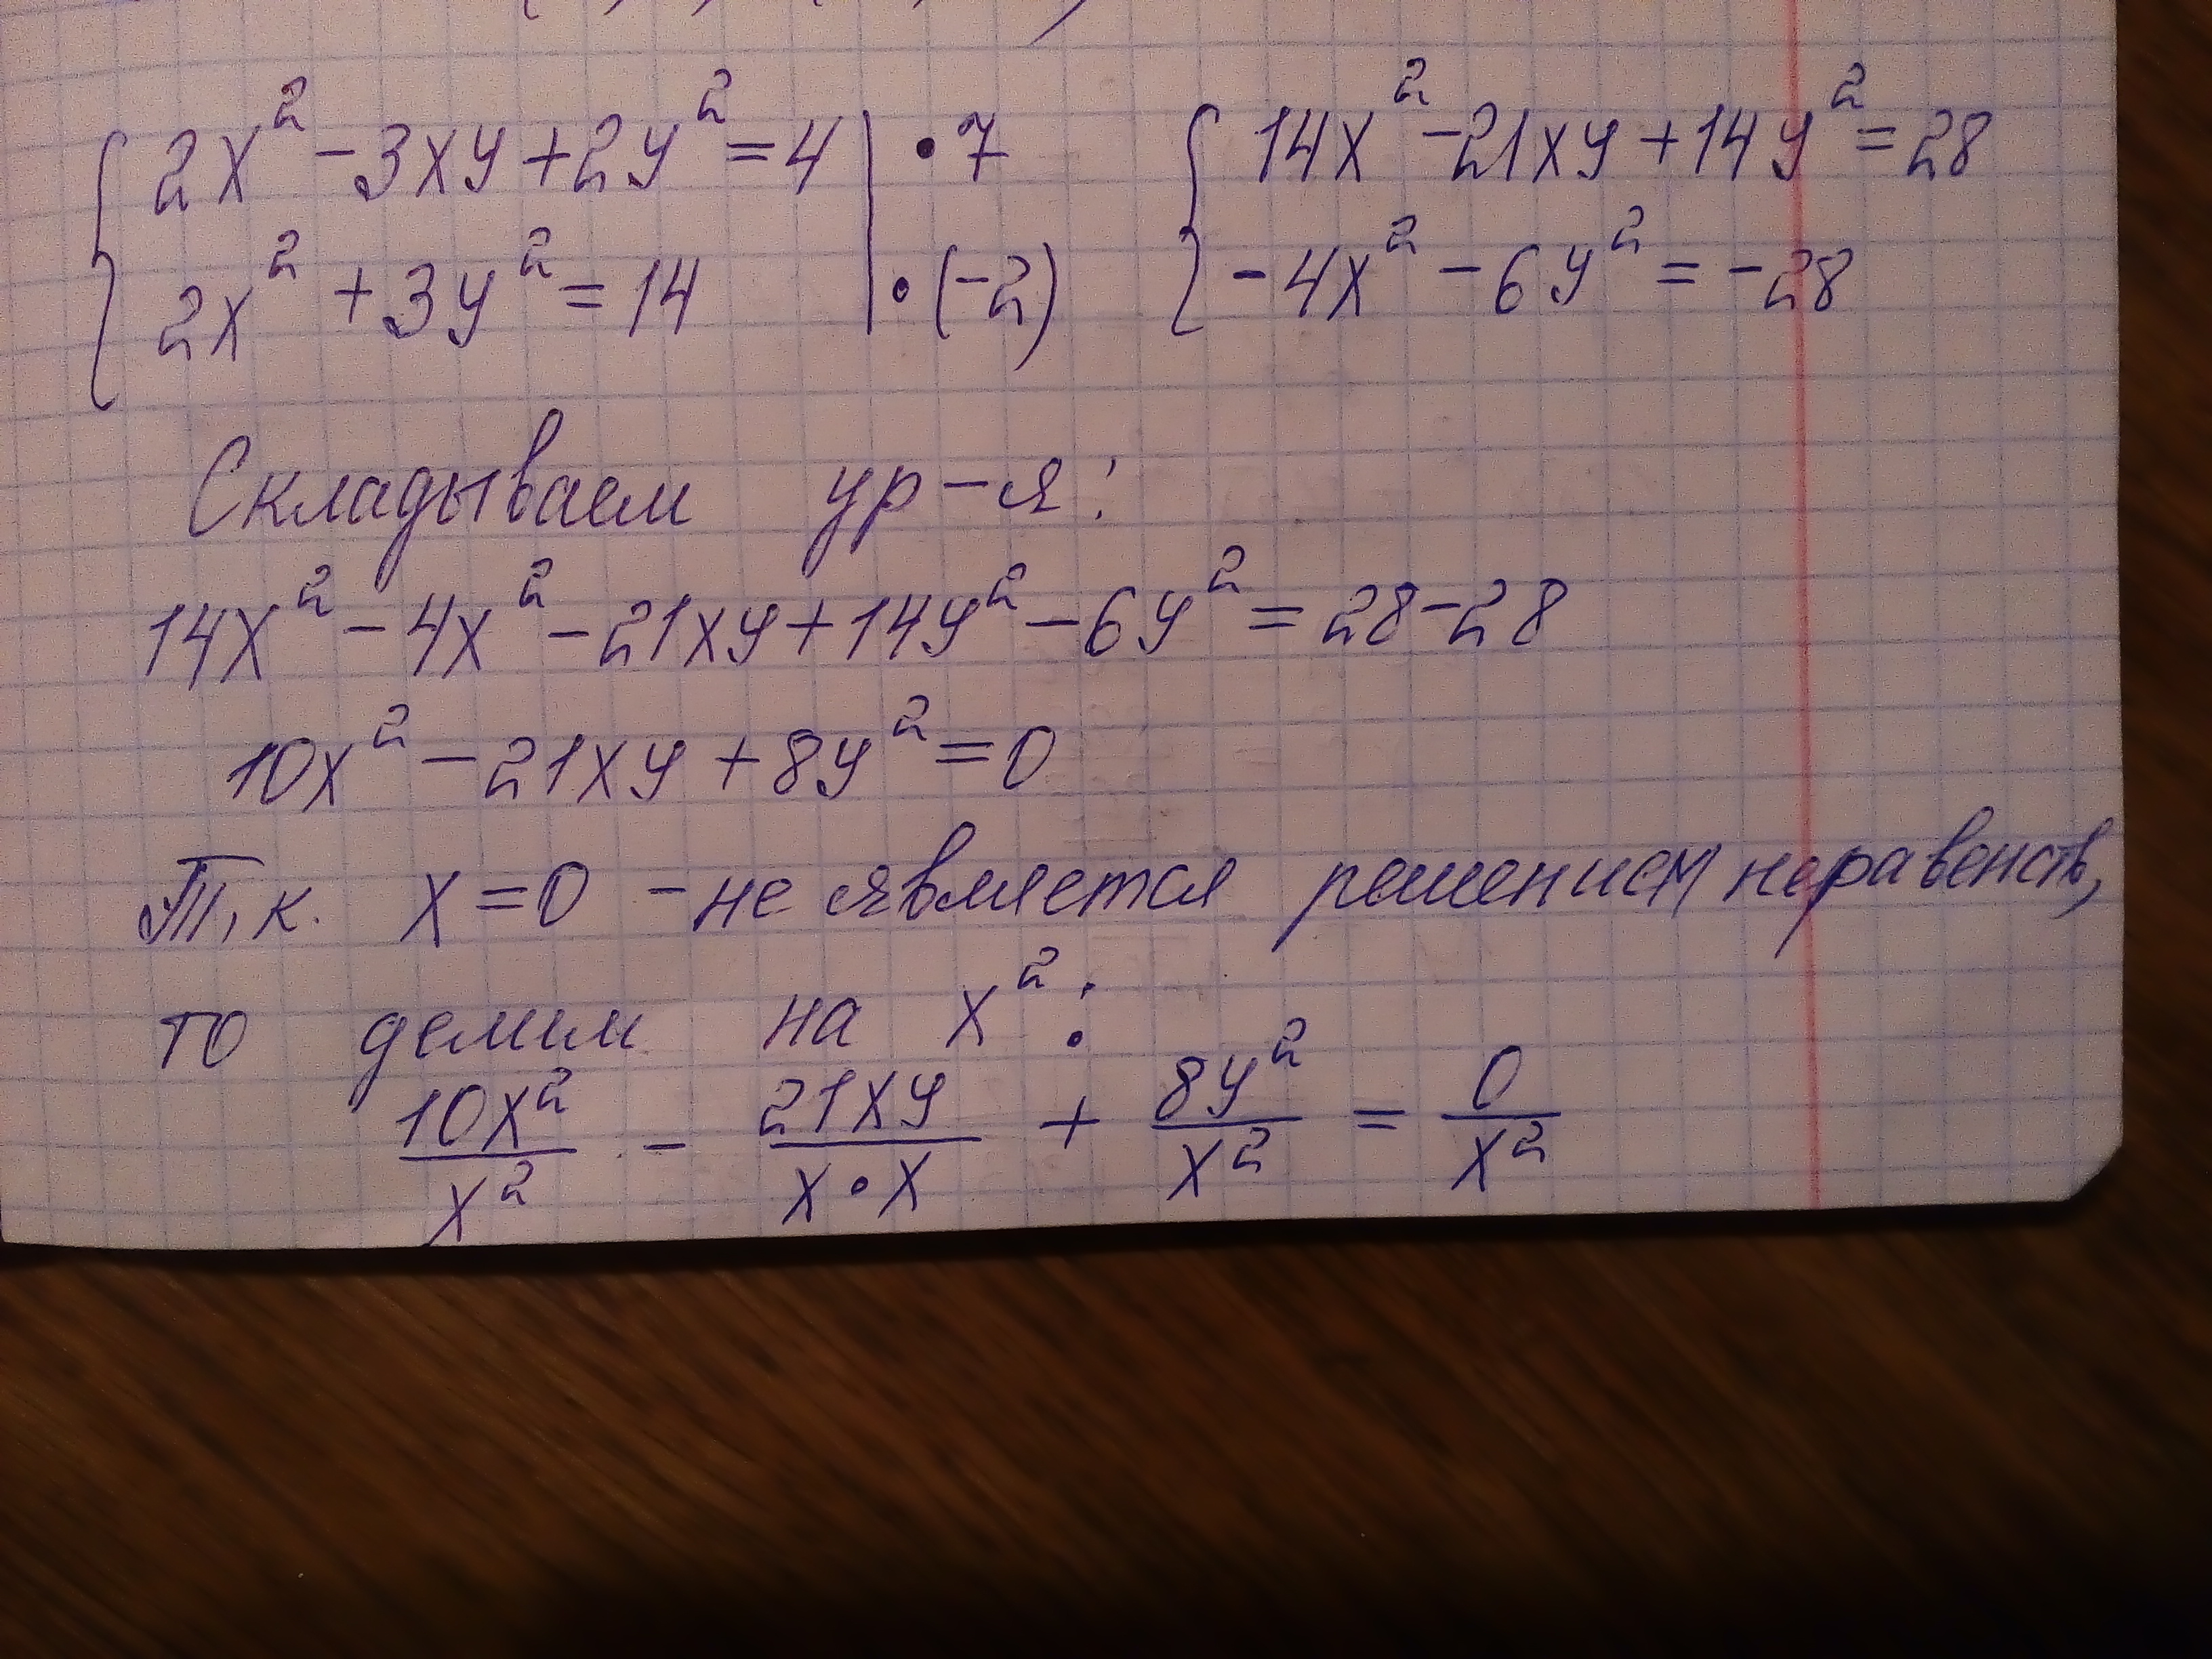 { 2x² - 3xy + 2y² = 4 | • 7 { 14x² - 21xy + 14y² = 28
2x² + 3y² = 14 | • (-2) - 4x² - 6y² = -28
Складываем ур-я:
14x² - 4x² - 21xy + 14y² - 6y² = 28 - 28
10x² - 21xy + 8y² = 0
Т.к. x = 0 - не является решением неравенств,
то делим на x²:
10x²/x² - 21xy/x•x + 8y²/x² = 0/x²